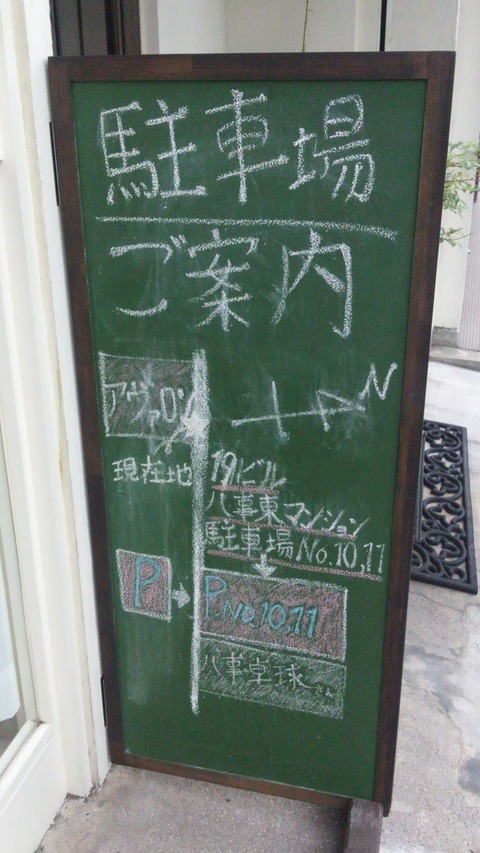 駐車場
ご案内
N
アヴァロン
現在地
19ビル
八事東マンション
駐車場No.10,11
P
P.No.10,11
八事卓球さん